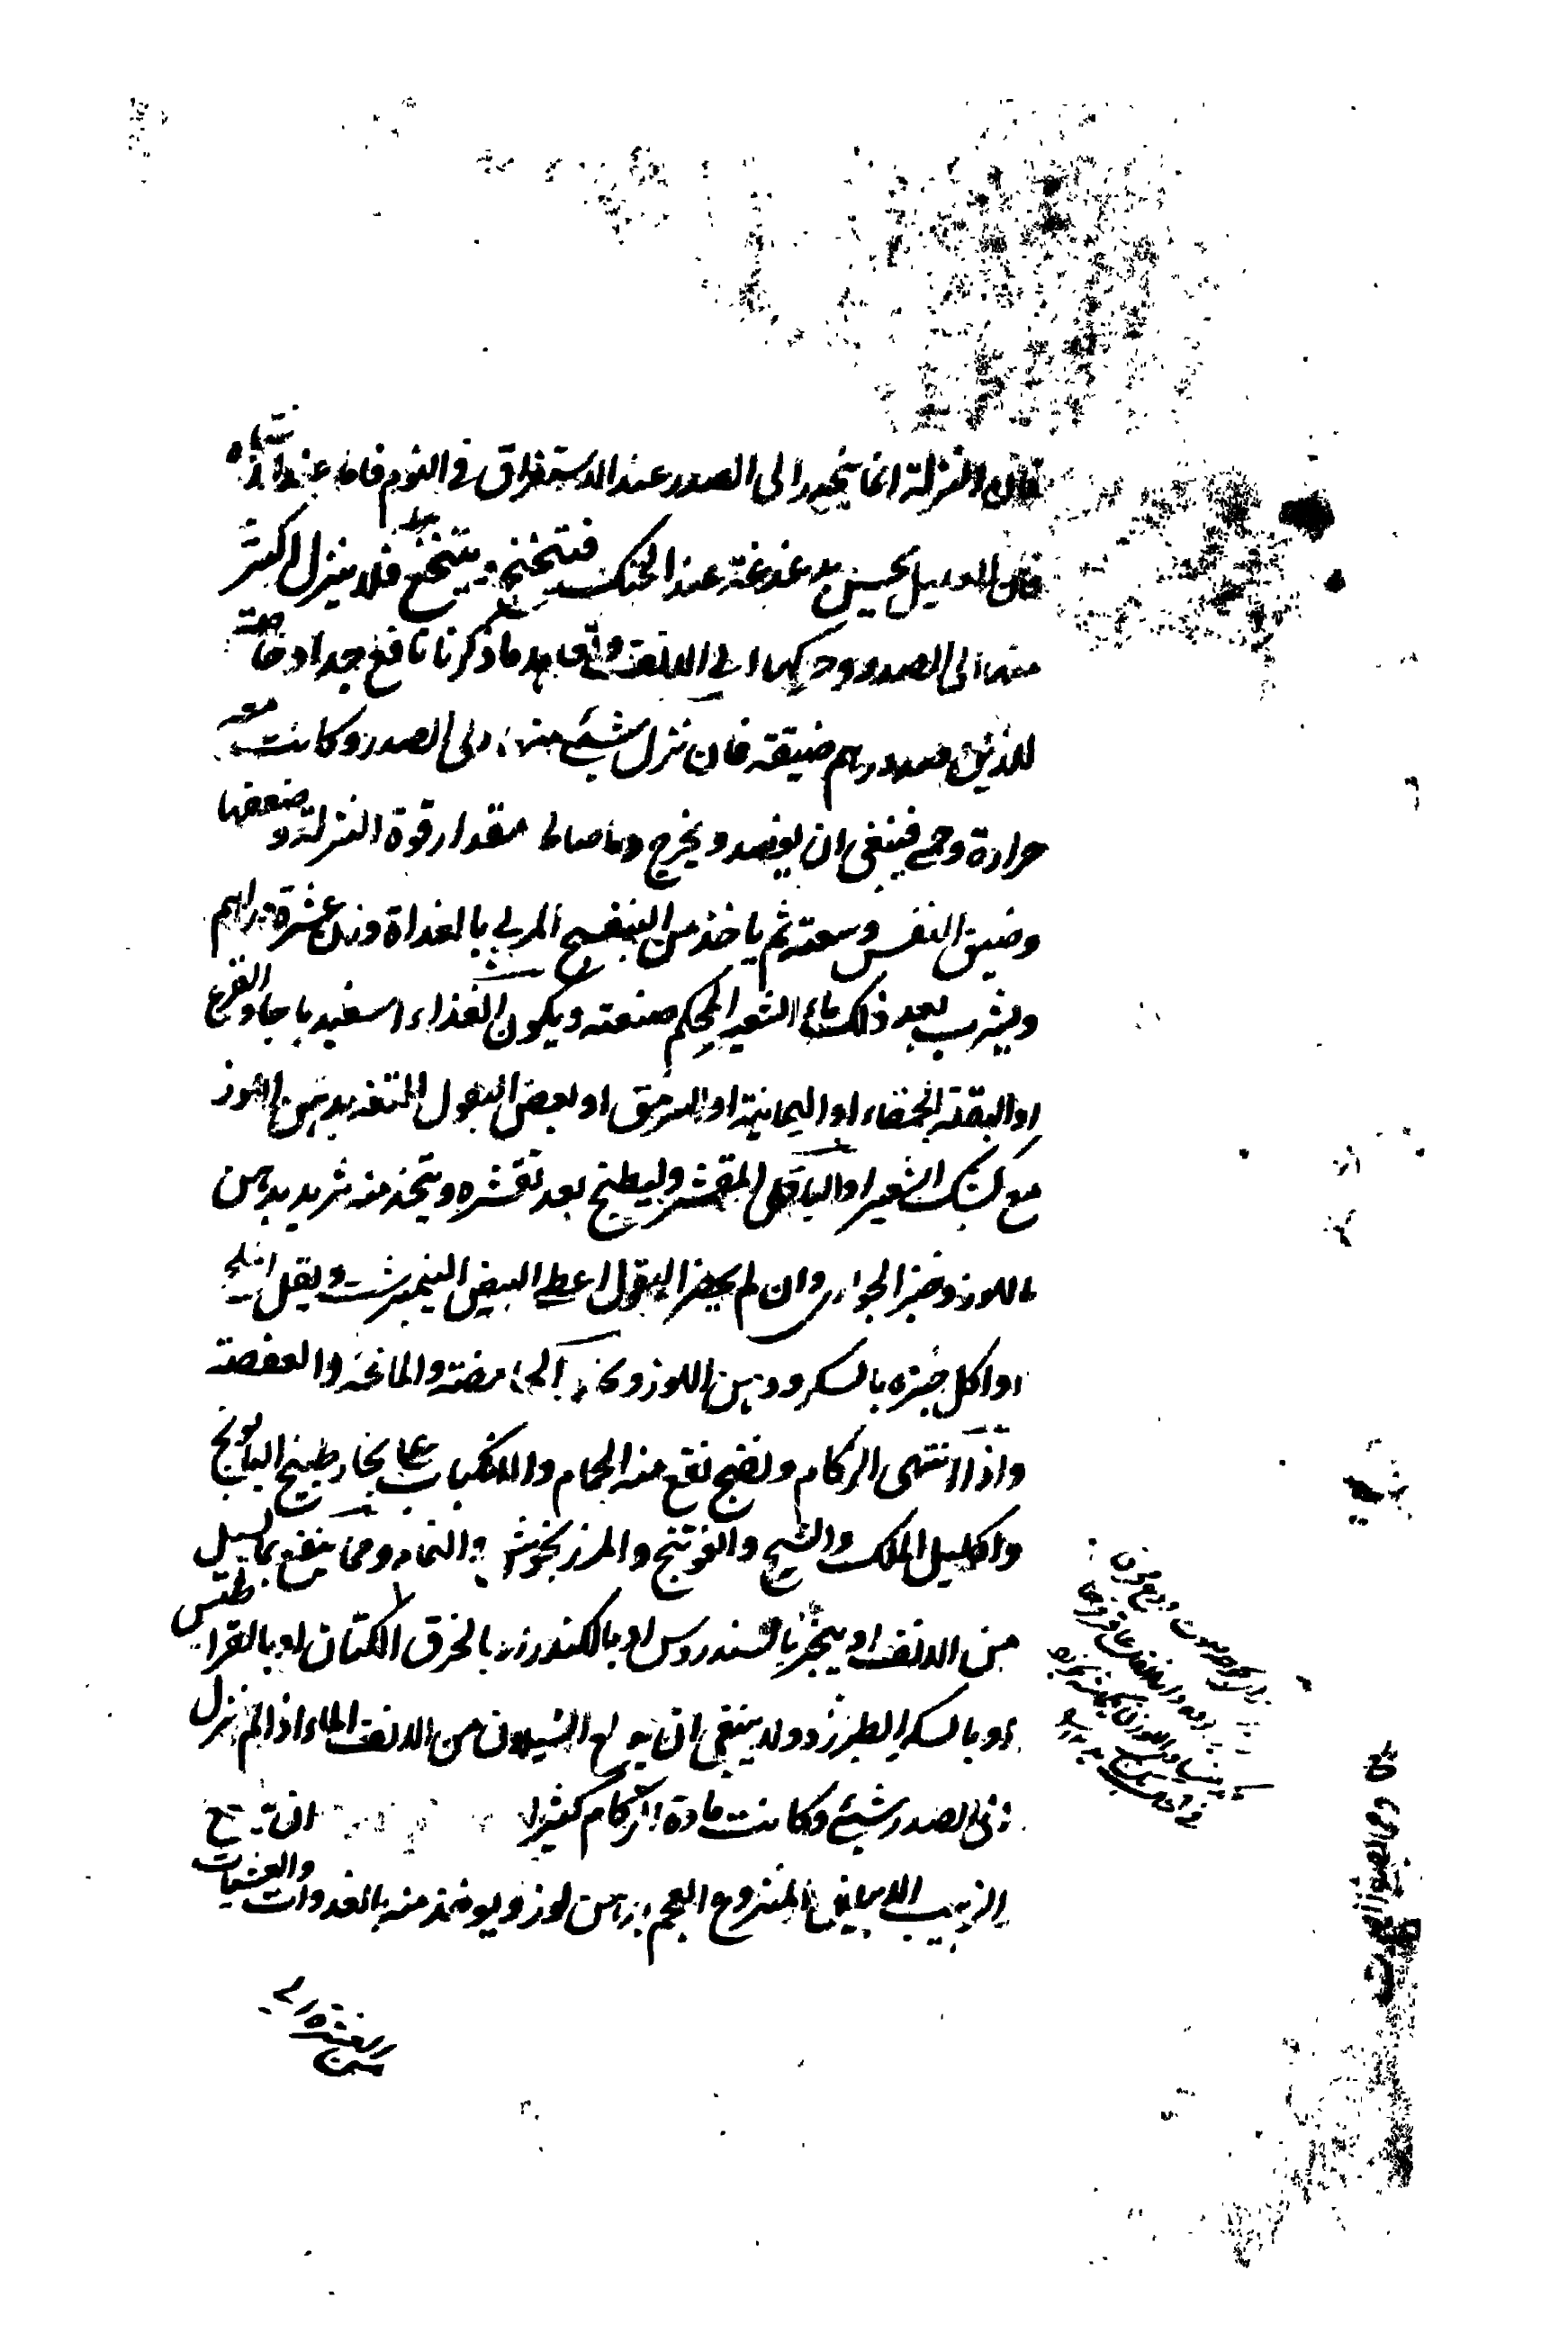 فان النزلة انما ينحدر الى الصدر عند الاستغراق في النوم فاما عند انتباه
فان العليل يحس بدغدغة عند الحنك فيتنحنح ويتنخع فلا ينزل اكثر
منها الى الصدر وحركها الى الانف وتعاهد ما ذكرنا نافع جدا وخاصة
للذين صدورهم ضيقة فان نزل شيء منها الى الصدر وكانت معه
حرارة وحمى فينبغي ان يفصد ويخرج دما صالحا مقدار قوة النزلة وضعفها
وضيق النفس وسعته ثم ياخذ من البنفسج المربى بالغداة وزن عشرة دراهم
ويشرب بعد ذلك ماء الشعير المحكم صنعته ويكون الغذاء اسفيدباجا والقرع
او البقلة الحمقاء او اليمانية او السرمق او بعض البقول المتخذ بدهن اللوز
مع كشك الشعير او الباقلى المقشر وليطبخ بعد تقشره ويتخذ منه ثريد بدهن
اللوز وخبز الحوارى وان لم يحضر البقول اعطى البيض النيمبرشت ويقل الملح
او اكل خبزه بالسكر ودهن اللوز وتجنب الحامضة والمالحة والعفصة
واذا انتهى الزكام ونضج نفع منه الحمام والانكباب على بخار طبيخ البابونج
واكليل الملك والشيح والفوتنج والمرزنجوش والنمام ومما ينفع مما يسيل
من الانف ان يبخر بالسندروس او بالكندر او بالخرق الكتان او بالقراطيس
او بالسكر الطبرزد ولا ينبغي ان يمنع السيلان من الانف الماء اذا لم ينزل
الى الصدر شيء وكانت مادة الزكام كثيرا ان
الزبيب المنزوع العجم بدهن لوز ويوخذ منه بالغدوات والعشيات